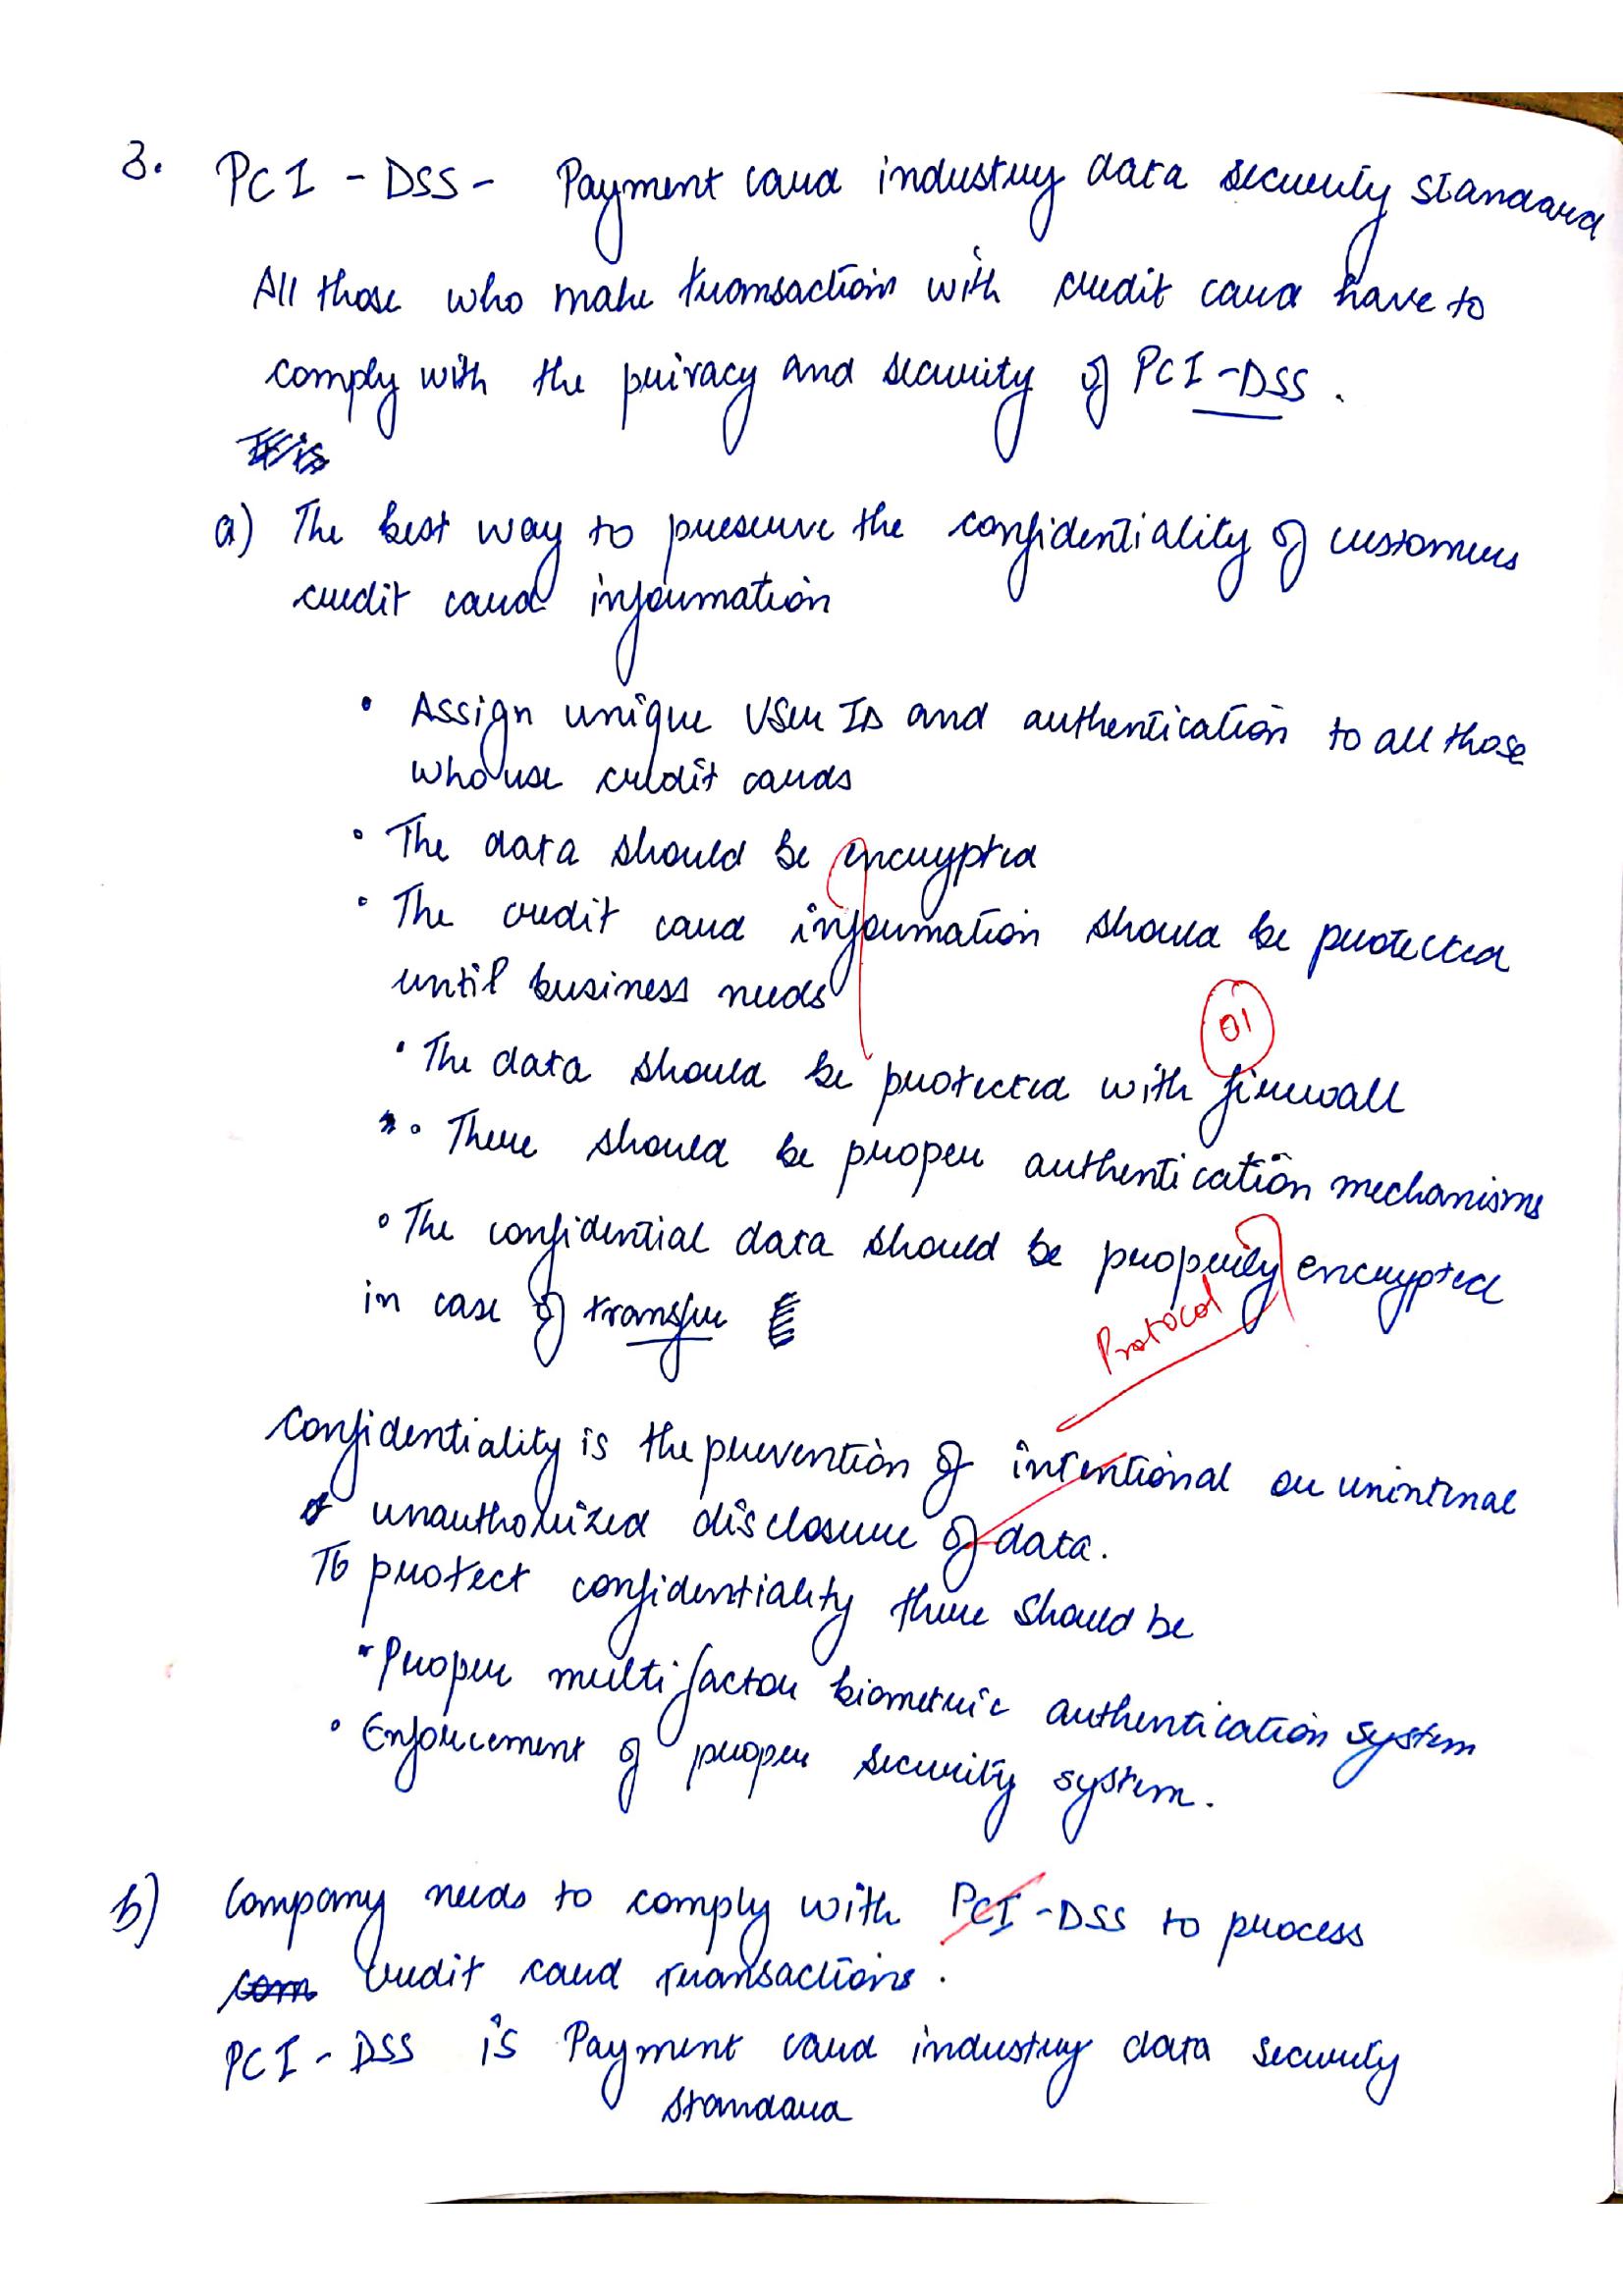 3. PCI - DSS - Payment card industry data security standard
All those who make transactions with credit card have to
comply with the privacy and security of PCI-DSS.
a) The best way to preserve the confidentiality of customers
credit card information
• Assign unique User ID and authentication to all those
who use credit cards
• The data should be encrypted
• The credit card information should be protected
until business needs
01
• The data should be protected with firewall
• There should be proper authentication mechanisms
• The confidential data should be properly encrypted
in case of transfer
Protocol
Confidentiality is the prevention of intentional or unintinal
unauthorized disclosure of data.
To protect confidentiality there should be
• Proper multifactor biometric authentication system
• Enforcement of proper security system.
b) Company needs to comply with PCI-DSS to process
com credit card transactions.
PCI - DSS is Payment card industry data security
standard